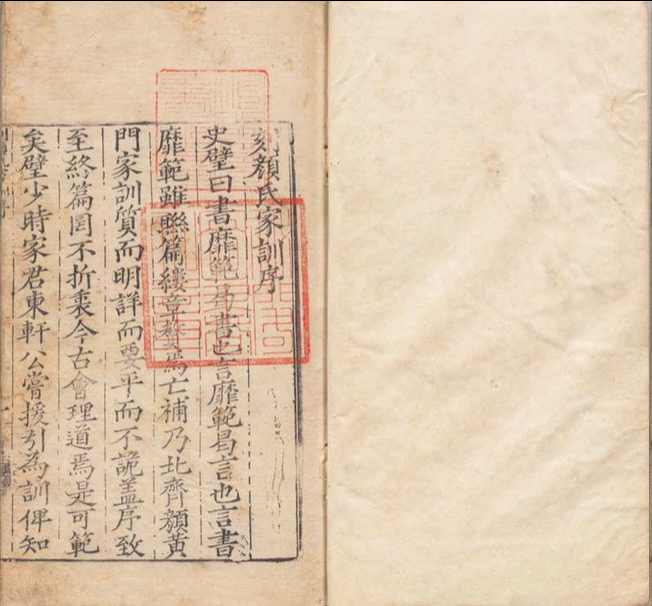 刻顏氏家訓序
史璧曰書靡範曷書也言靡範曷言也言書
靡範雖聯篇縷章贅焉亡補乃北齊顏黃
門家訓質而明詳而要平而不詭盖序致
至終篇罔不折衷今古會理道焉是可範
矣璧少時家君東軒公嘗援引為訓俾知